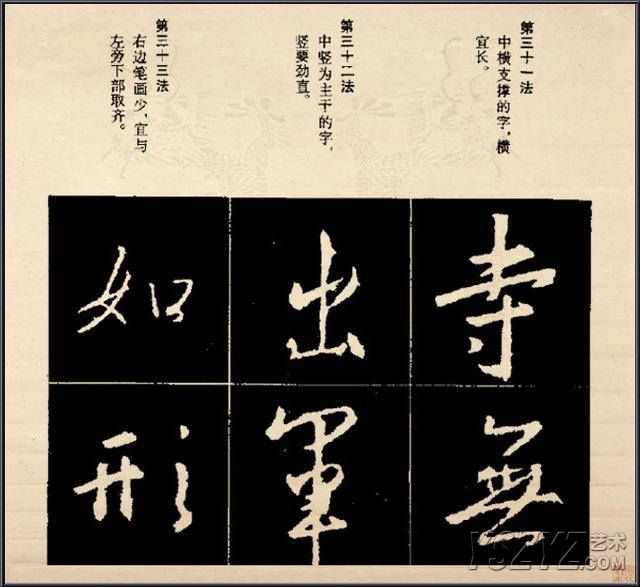 第三十一法
中横支撑的字，横
宜长。
第三十二法
中竖为主干的字，
竖要劲直。
第三十三法
右边笔画少，宜与
左旁下部取齐。
寺
無
出
軍
如
形
YSZYZ艺术